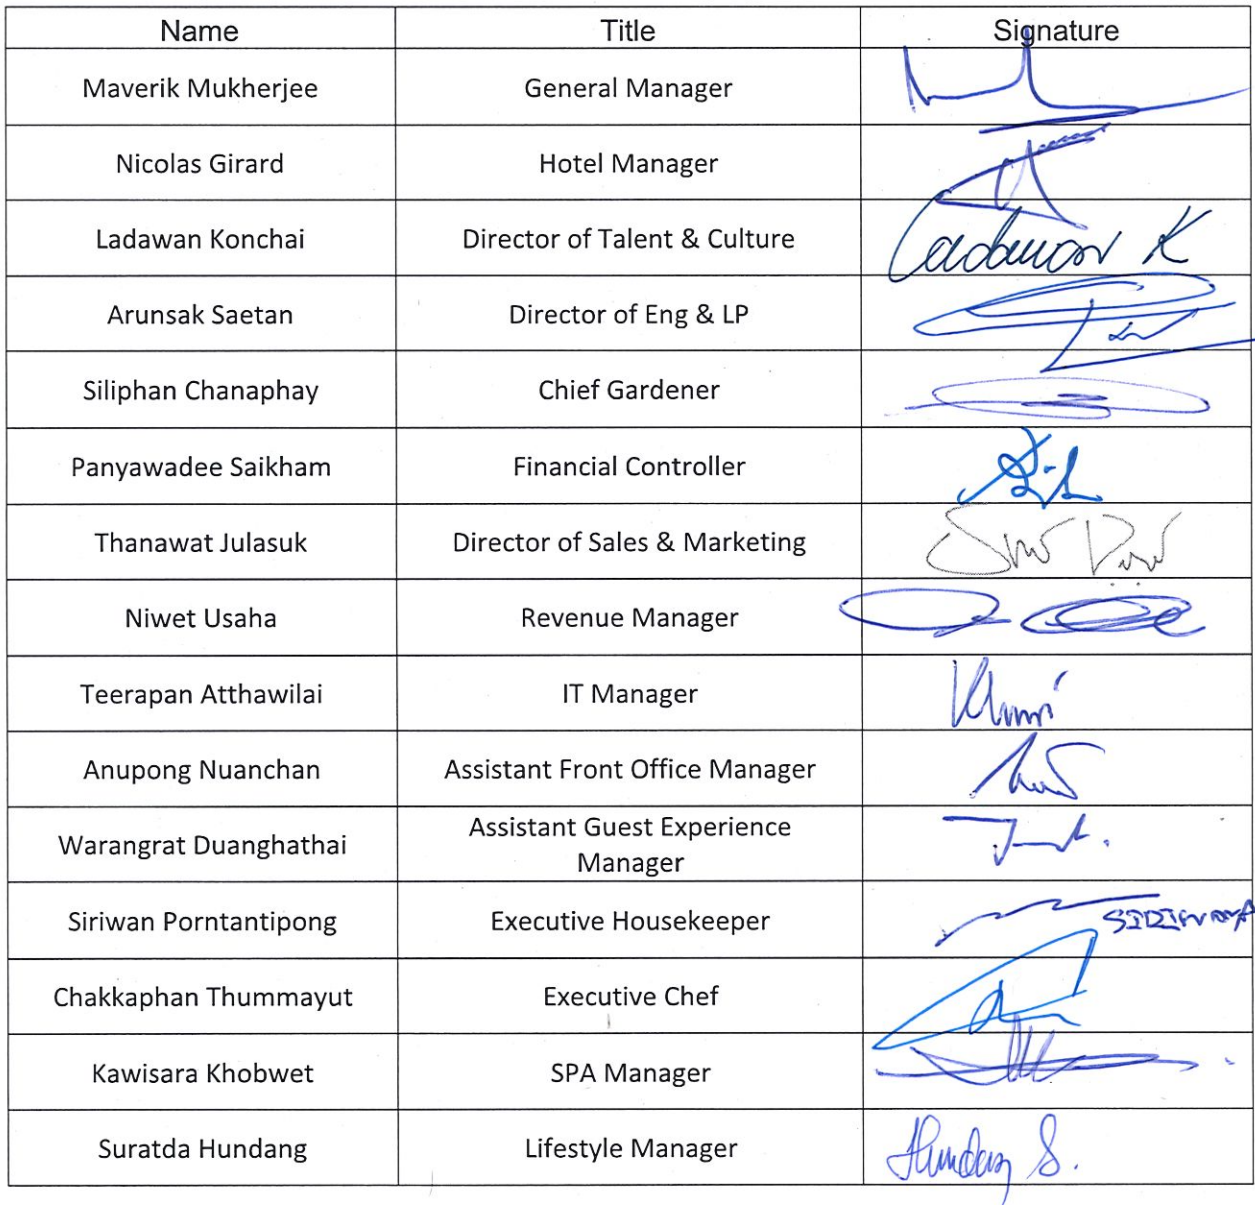 Name Title Signature
Maverik Mukherjee General Manager
Nicolas Girard Hotel Manager
Ladawan Konchai Director of Talent & Culture Ladawan K
Arunsak Saetan Director of Eng & LP
Siliphan Chanaphay Chief Gardener
Panyawadee Saikham Financial Controller
Thanawat Julasuk Director of Sales & Marketing
Niwet Usaha Revenue Manager
Teerapan Atthawilai IT Manager
Anupong Nuanchan Assistant Front Office Manager
Warangrat Duanghathai Assistant Guest Experience
Manager
Siriwan Porntantipong Executive Housekeeper
Chakkaphan Thummayut Executive Chef
Kawisara Khobwet SPA Manager
Suratda Hundang Lifestyle Manager Hundang S.